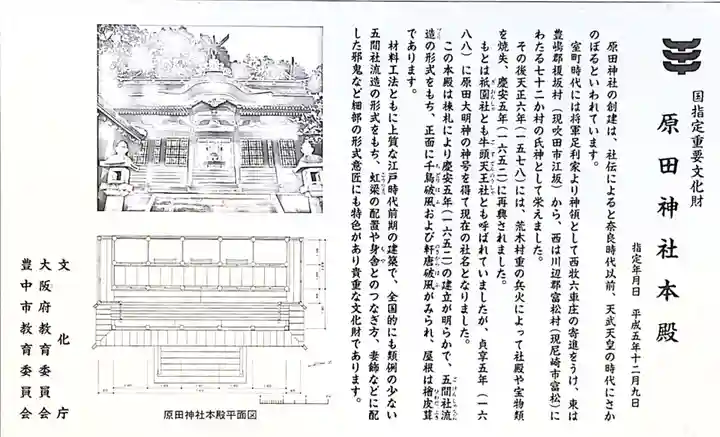 国指定重要文化財
原田神社本殿
指定年月日 平成五年十二月九日
原田神社の創建は、社伝によると奈良時代以前、天武天皇の時代にさか
のぼるといわれています。
室町時代には将軍足利家より神領として西牧六車庄の寄進をうけ、東は
豊嶋郡榎坂村（現吹田市江坂）から、西は川辺郡富松村（現尼崎市富松）に
わたる七十二か村の氏神として栄えました。
その後天正六年（一五七八）には、荒木村重の兵火によって社殿や宝物類
を焼失、慶安五年（一六五二）に再興されました。
もとは祇園社とも牛頭天王社とも呼ばれていましたが、貞享五年（一六
八八）に原田大明神の神号を得て現在の社名となりました。
この本殿は棟札により慶安五年（一六五二）の建立が明らかで、五間社流
造の形式をもち、正面に千鳥破風および軒唐破風がみられ、屋根は檜皮葺
であります。
材料工法ともに上質な江戸時代前期の建築で、全国的にも類例の少ない
五間社流造の形式をもち、虹梁の配置や身舎とのつなぎ方、妻飾などに配
した邪鬼など細部の形式意匠にも特色があり貴重な文化財であります。
文化庁
大阪府教育委員会
豊中市教育委員会
原田神社本殿平面図